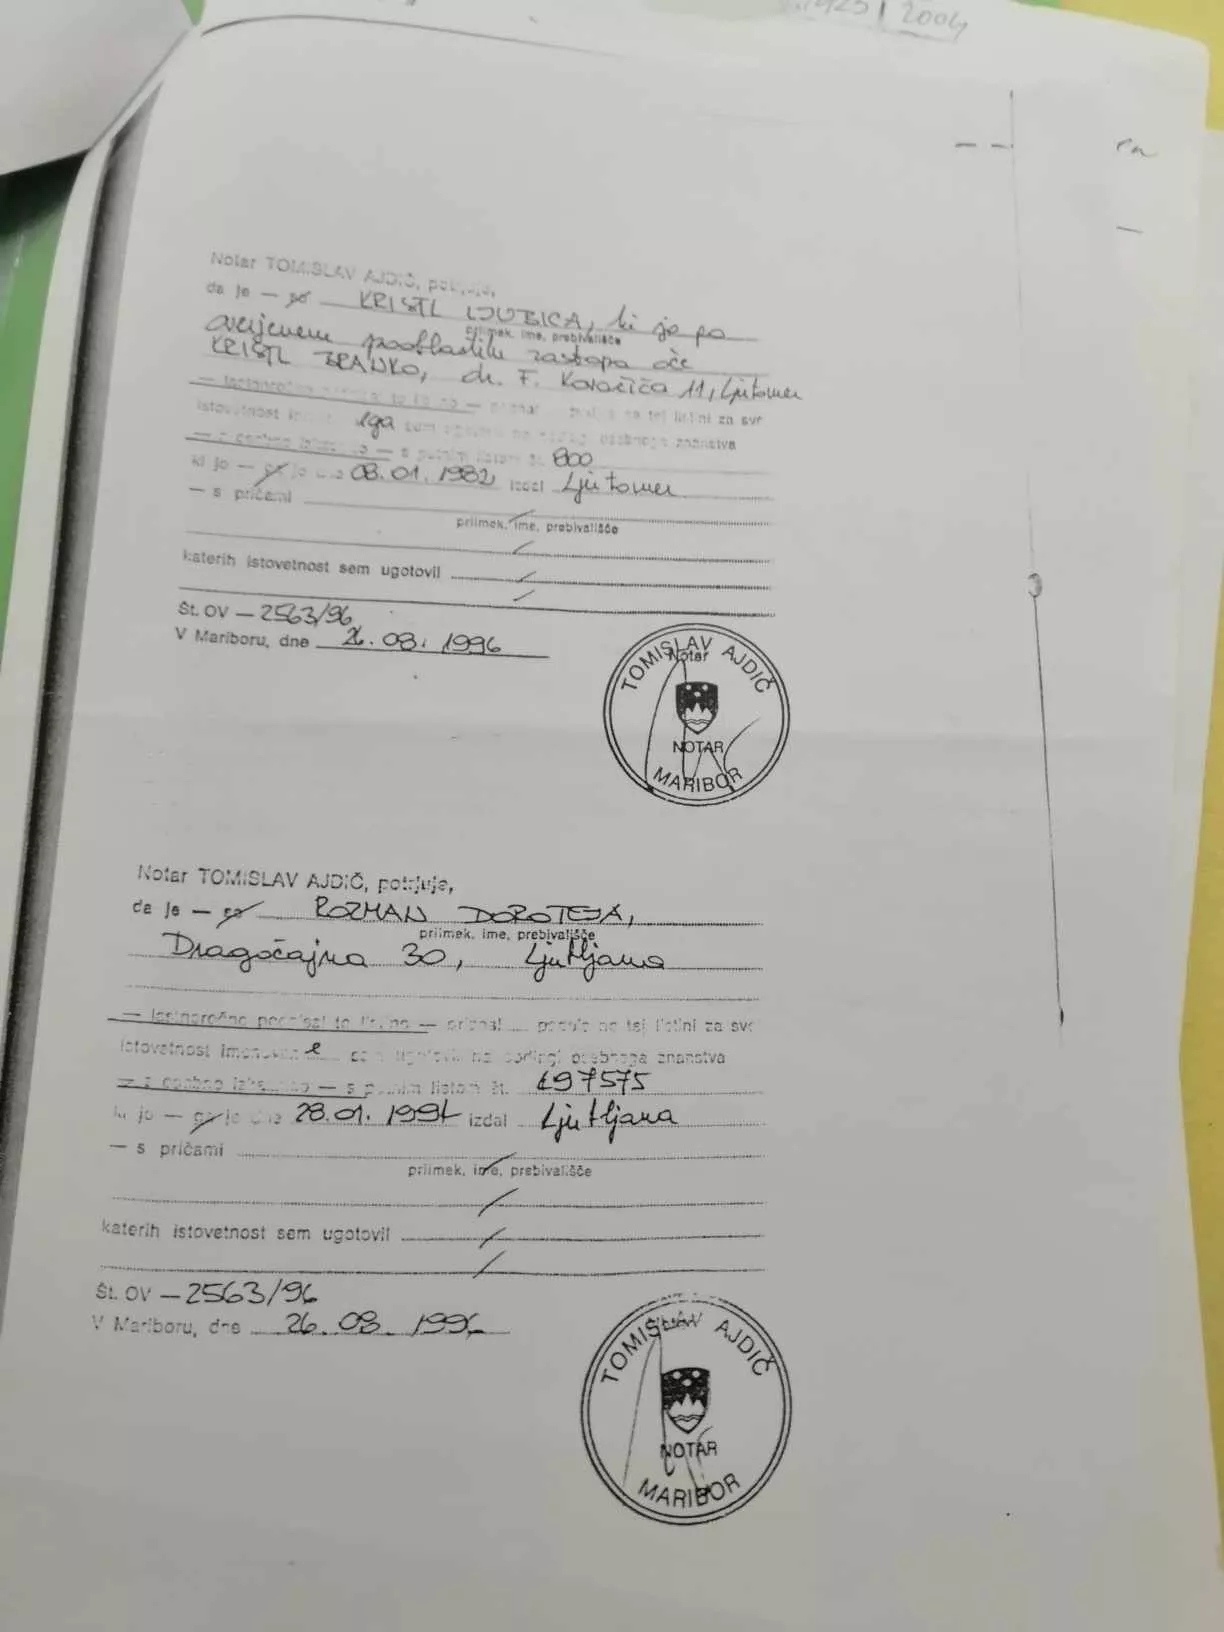 2004
Notar TOMISLAV AJDIČ, potrjuje,
da je — so KRISTL LJUBICA, ki jo po
priimek, ime, prebivališče
overjenem pooblastilu zastopa oče
KRISTL BRANKO, dr. F. Kovačiča 11, Ljutomer
— lastnoročno to listino — priznal na tej listini za svoj
istovetnost ega sem osebnega znanstva
— z osebno izkaznico — s potnim listom št. 800
ki jo — ga je dne 08.01.1982 izdal Ljutomer
— s pričami
priimek, ime, prebivališče
katerih istovetnost sem ugotovil
Št. OV — 2563/96
V Mariboru, dne 26.08.1996
TOMISLAV AJDIČ
Notar
NOTAR
MARIBOR
Notar TOMISLAV AJDIČ, potrjuje,
da je — so ROZMAN DOROTEJA,
priimek, ime, prebivališče
Dragočajna 30, Ljubljana
— lastnoročno podpisal to listino — priznal podpis na tej listini za svoj
istovetnost imenovane sem ugotovil na podlagi osebnega znanstva
— z osebno izkaznico — s potnim listom št. 197575
ki jo — ga je dne 28.01.1991 izdal Ljubljana
— s pričami
priimek, ime, prebivališče
katerih istovetnost sem ugotovil
Št. OV — 2563/96
V Mariboru, dne 26.08.1996
TOMISLAV AJDIČ
NOTAR
MARIBOR